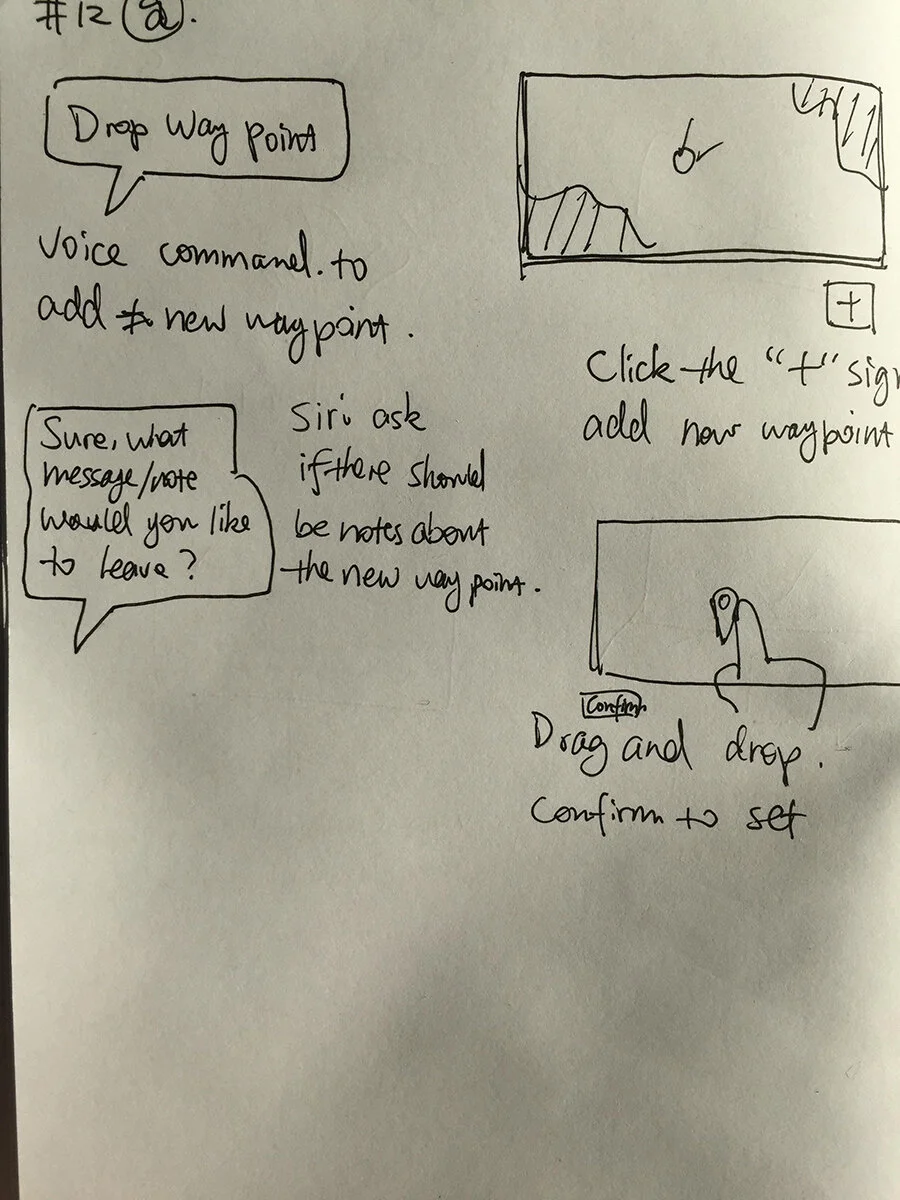 #12 a.
Drop Way point
Voice command. to
add new waypoint.
Sure, what
message/note
would you like
to leave?
Siri ask
if there should
be notes about
the new way point.
+
Click the "+" sign
add new waypoint
Confirm
Drag and drop.
Confirm to set